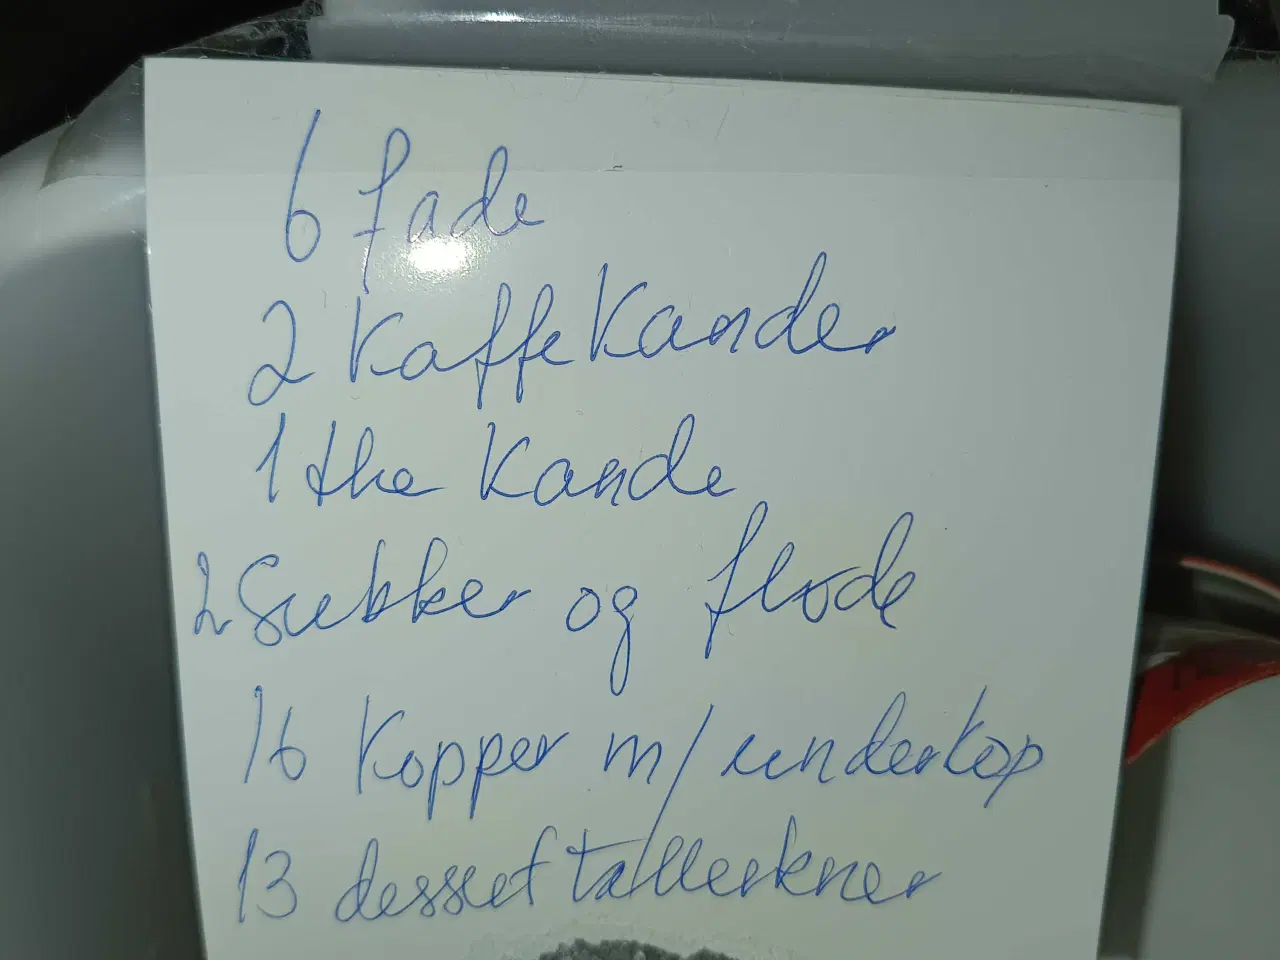 6 fade
2 Kaffe Kander
1 the Kande
2 Sukker og flode
16 Kopper m/underkop
13 dessert tallerkner